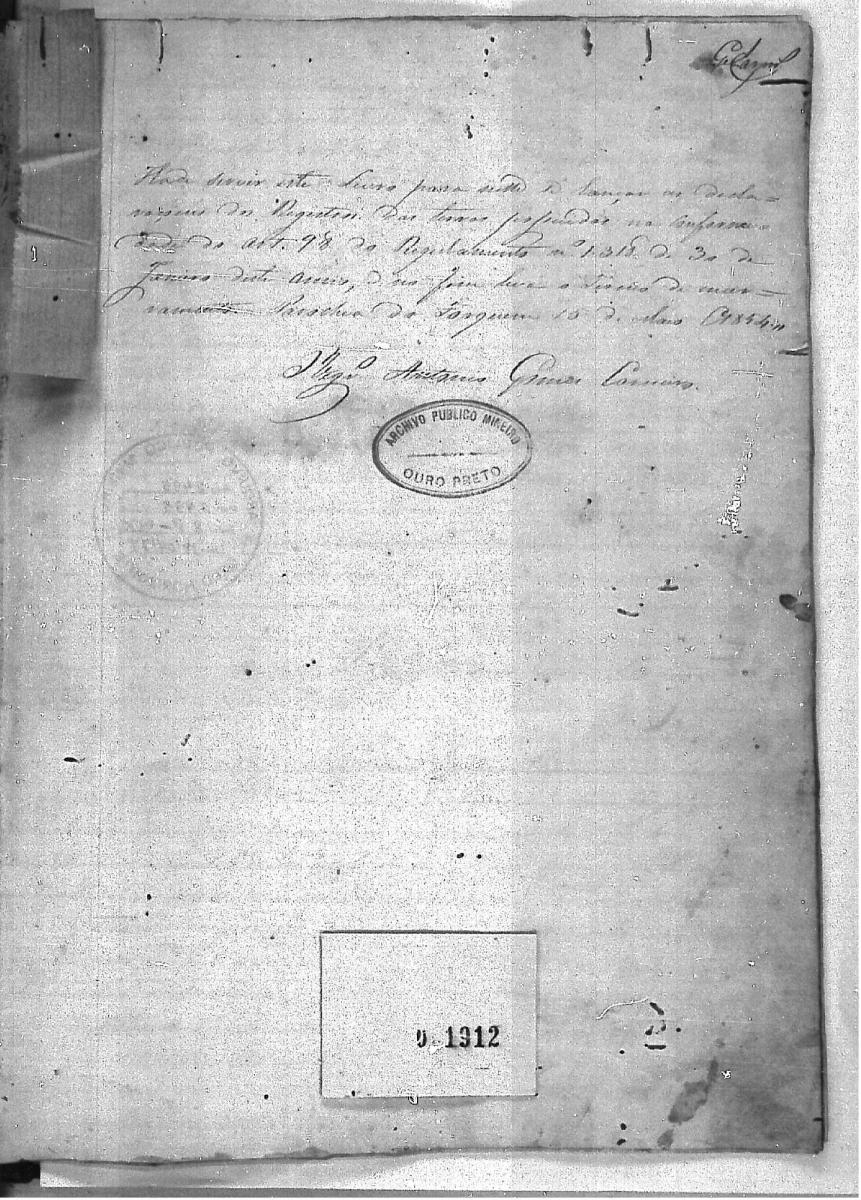 GCarnr.º
Hade servir este Livro para nelle se lançar as decla=
raçoens dos Registos das terras possuidas na conformi
dade do art. 98 do Regulamento nº 1318 de 30 de
Janeiro deste anno, e no fim leva o termo de
Parochia do 15 de Maio 1854
Antonio Gomes Carneiro.
ARCHIVO PUBLICO MINEIRO
OURO PRETO
1912